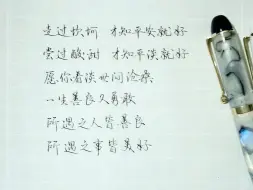 走过坎坷 才知平安就好
尝过酸甜 才知平淡就好
愿你看淡世间沧桑
一生善良又勇敢
所遇之人皆善良
所遇之事皆美好